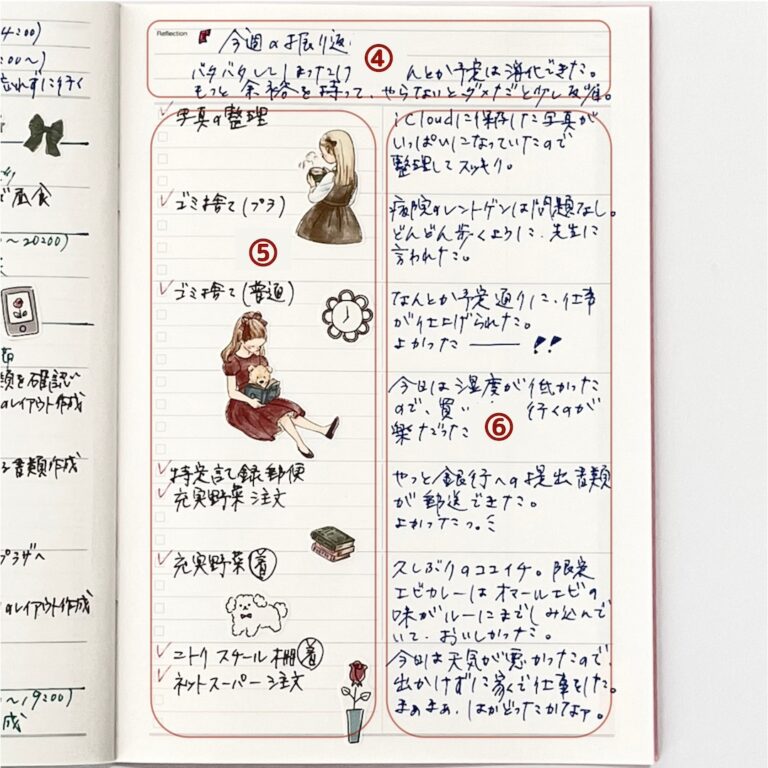 4200)
00〜)
忘れずに行く
で昼食
〜20200)
類を確認
のレイアウト作成
る書類作成
プラザへ
のレイアウト作成
〜19200)
成
Reflection
今週の振り返
④
バタバタしてしまったけ んとか予定は消化できた。
もっと余裕を持って、やらないとダメだと少し反省。
写真の整理
ゴミ捨て(プラ)
⑤
ゴミ捨て(普通)
特定記録郵便
充実野菜注文
充実野菜着
ニトリ スチール棚着
ネットスーパー注文
iCloudに保存した写真が
いっぱいになっていたので
整理してスッキリ。
病院のレントゲンは問題なし。
どんどん歩くように、先生に
言われた。
なんとか予定通りに、仕事
が仕上げられた。
よかったーー!!
今日は湿度が低かった
ので、買い 行くのが
楽だった
⑥
やっと銀行への提出書類
が郵送できた。
よかったっ。
久しぶりのココイチ。限定
エビカレーはオマールエビの
味がルーにまでしみ込んで
いて、おいしかった。
今日は天気が悪かったので、
出かけずに家で仕事をした。
まぁまぁ、はかどったかなァ。